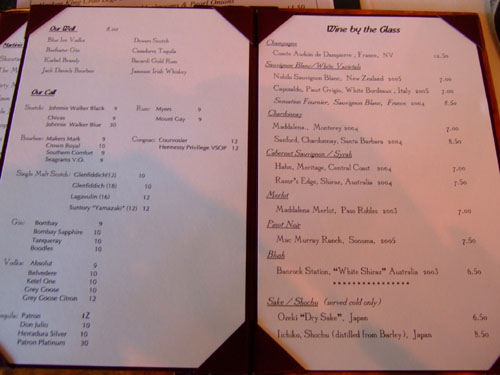 Our Well 8.00
Blue Ice Vodka
Dewars Scotch
Bacardi Gold Rum
Jameson Irish Whiskey
Jack Daniels Bourbon
Our Call
Scotch: Johnnie Walker Black 9
Chivas 9
Johnnie Walker Blue 30
Rum: Myers 9
Mount Gay 9
Bourbon: Makers Mark 9
Crown Royal 10
Southern Comfort 9
Seagrams V.O. 9
Cognac: Courvosier 12
Hennessy Privilege VSOP 12
Single Malt Scotch: Glenfiddich(12) 10
Glenfiddich (18) 10
Lagavulin (16) 12
Suntory "Yamazaki" (12) 12
Gin: Bombay 9
Bombay Sapphire 10
Tanqueray 10
Boodles 10
Vodka: Absolut 9
Belvedere 10
Ketel One 10
Grey Goose 10
Grey Goose Citron 12
Patron 12
Don Julio 10
Herradura Silver 10
Patron Platinum 30
Wine by the Glass
Champagne
France, NV 12.50
Sauvignon Blanc/White Varietals
Nobilo Sauvignon Blanc, New Zealand 2005 7.00
Caposaldo, Pinot Grigio, White Bordeaux, Italy, 2005 7.00
Sebastien Fournier, Sauvignon Blanc, France 2004 8.50
Chardonnay
Maddalena, Monterey 2004 7.00
Sanford, Chardonnay, Santa Barbara 2004 8.50
Cabernet Sauvignon / Syrah
Hahn, Meritage, Central Coast 2004 7.00
Razor's Edge, Shiraz, Australia 2004 7.50
Merlot
Maddalena Merlot, Paso Robles 2003 7.00
Pinot Noir
Mac Murray Ranch, Sonoma, 2005 7.50
Blush
Banrock Station, "White Shiraz" Australia 2003 6.50
***************
Sake / Shochu (served cold only)
Ozeki "Dry Sake", Japan 6.50
Iichiko, Shochu (distilled from Barley), Japan 8.50